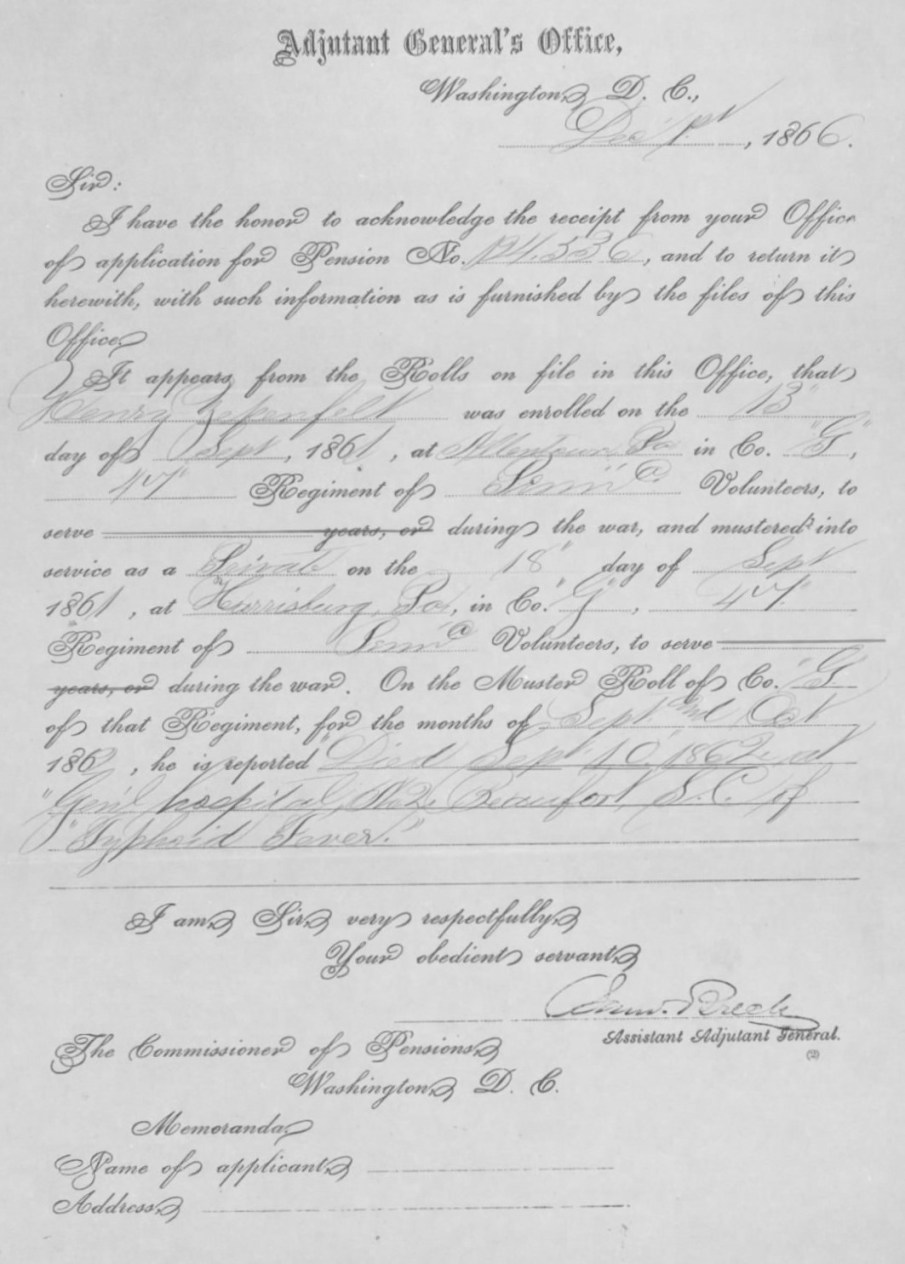 Adjutant General's Office,
Washington, D. C.,
Dec 1st, 1866.
Sir:
I have the honor to acknowledge the receipt from your Office
of application for Pension No. 124.336, and to return it
herewith, with such information as is furnished by the files of this
Office.
It appears from the Rolls on file in this Office, that
Henry was enrolled on the 13"
day of Sept, 1861, at Allentown, Pa in Co. "G",
47" Regiment of Penn'a Volunteers, to
serve years, or during the war, and mustered into
service as a Private on the 18" day of Sept
1861, at Harrisburg, Pa, in Co. "G", 47"
Regiment of Penn'a Volunteers, to serve
years, or during the war. On the Muster Roll of Co. "G"
of that Regiment, for the months of Sept. and Oct
1862, he is reported Died Sept. 10, 1862 at
"Gen'l hospital No 2, Beaufort S.C. of
"Typhoid Fever."
I am, Sir, very respectfully,
Your obedient servant,
Sam. Breck
Assistant Adjutant General.
(2)
The Commissioner of Pensions,
Washington, D. C.
Memoranda,
Name of applicant,
Address,